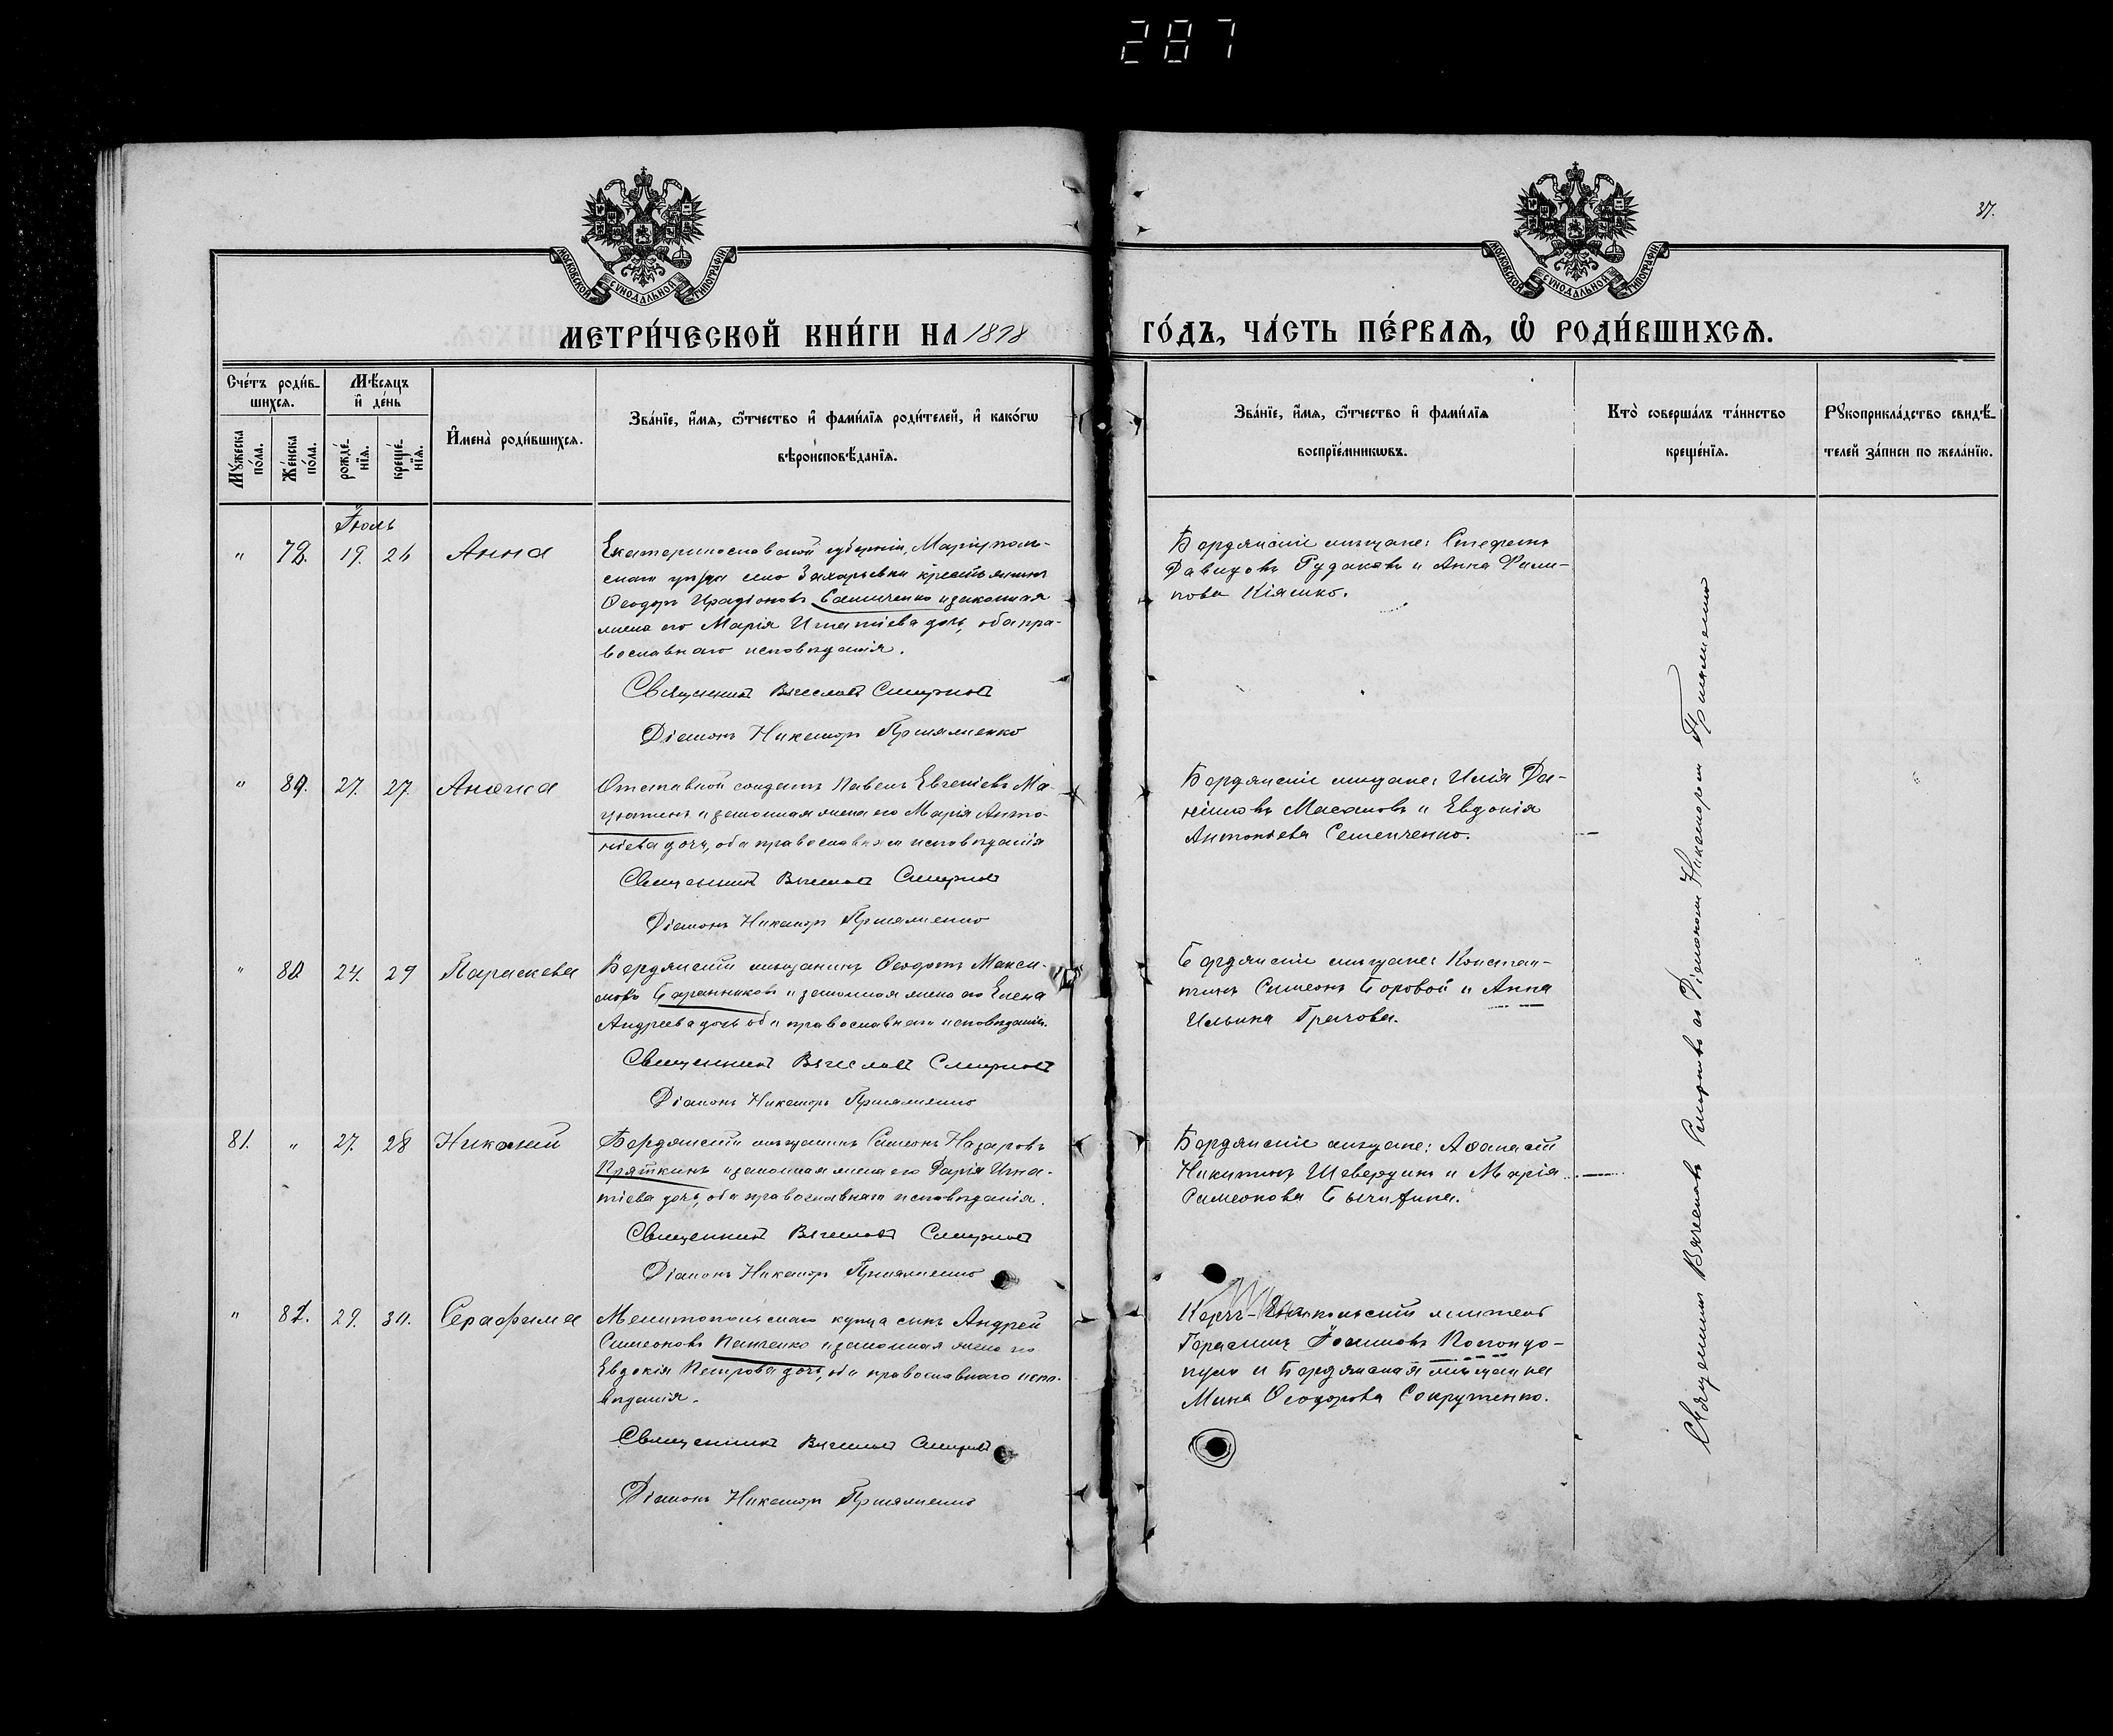 287
37.
МОСКОВСКОЙ СѴНОДАЛЬНОЙ ТИПОГРАФІИ
МОСКОВСКОЙ СѴНОДАЛЬНОЙ ТИПОГРАФІИ
МЕТРИ́ЧЕСКОЙ КНИ́ГИ НА 1898
ГО́ДЪ, ЧА́СТЬ ПЕ́РВАѦ, Ѽ РОДИ́ВШИХСѦ.
Сче́тъ роди́в-
шихсѧ.
Мѣ́сѧцъ
и҆ де́нь
Мꙋ́жеска
по́ла.
Же́нска
по́ла.
рожде́-
нїѧ.
креще́-
нїѧ.
И҆мена̀ роди́вшихсѧ.
Зва́нїе, и҆́мѧ, ѻ҆́тчество и҆ фами́лїѧ роди́телей, и҆ како́гѡ
вѣроисповѣ́данїѧ.
Зва́нїе, и҆́мѧ, ѻ҆́тчество и҆ фами́лїѧ
воспрїе́мникѡвъ.
Кто̀ соверша́лъ та́инство
креще́нїѧ.
Рꙋкоприкла́дство свидѣ́-
телей за́писи по жела́нїю.
Іюль
" 79. 19. 26 Анна
Екатеринославской губерніи, Маріуполь-
скаго уѣзда село Захарьевки крестьянинъ
Ѳеодоръ Иродіоновъ и законная
жена его Марія Игнатіева дочь, оба пра-
вославнаго исповѣданія.
Священникъ Вячеславъ Смирновъ
Діаконъ Никаноръ
Бердянскіе мѣщане: Стефанъ
Давидовъ Рудаковъ и Анна Фили-
пова Кіяшко.
" 80. 27. 27.
Отставной солдатъ Павелъ Евгеніевъ Ма-
и законная жена его Марія Анто-
ніева дочь, оба православнаго исповѣданія
Священникъ Вячеславъ Смирновъ
Діаконъ Никаноръ
Бердянскіе мѣщане: Илія Да-
ніиловъ Масаловъ и Евдокія
Антоніева Семенченко.
" 24. 29 Параскева
Бердянскій мѣщанинъ Ѳеодотъ Макси-
мовъ Баранниковъ и законная жена его Елена
Андреева дочь оба православнаго исповѣданія.
Священникъ Вячеславъ Смирновъ
Діаконъ Никаноръ
Бердянскіе мѣщане: Констан-
тинъ Симеонъ Боровой и Анна
Ильина Грачова.
81. " 27. 28 Николай
Бердянскій мѣщанинъ Симеонъ Назаровъ
Пряткинъ и законная жена его Дарія Игна-
тіева дочь, оба православнаго исповѣданія.
Священникъ Вячеславъ Смирновъ
Діаконъ Никаноръ
Бердянскіе мѣщане: Аѳанасій
Никитинъ Шевердинъ и Марія
Симеонова
" 82. 29. 30. Серафима
Мелитопольскаго купца сынъ Андрей
Симеоновъ Панченко и законная жена его
Евдокія Петрова дочь, оба православнаго испо-
вѣданія.
Священникъ Вячеславъ Смирновъ
Діаконъ Никаноръ
Керчь-Еникольскій житель
Герасимъ Іоанновъ Попондо-
пуло и Бердянская мѣщанка
Ѳеодорова
Священникъ Вячеславъ Смирновъ съ Діакономъ Никаноромъ